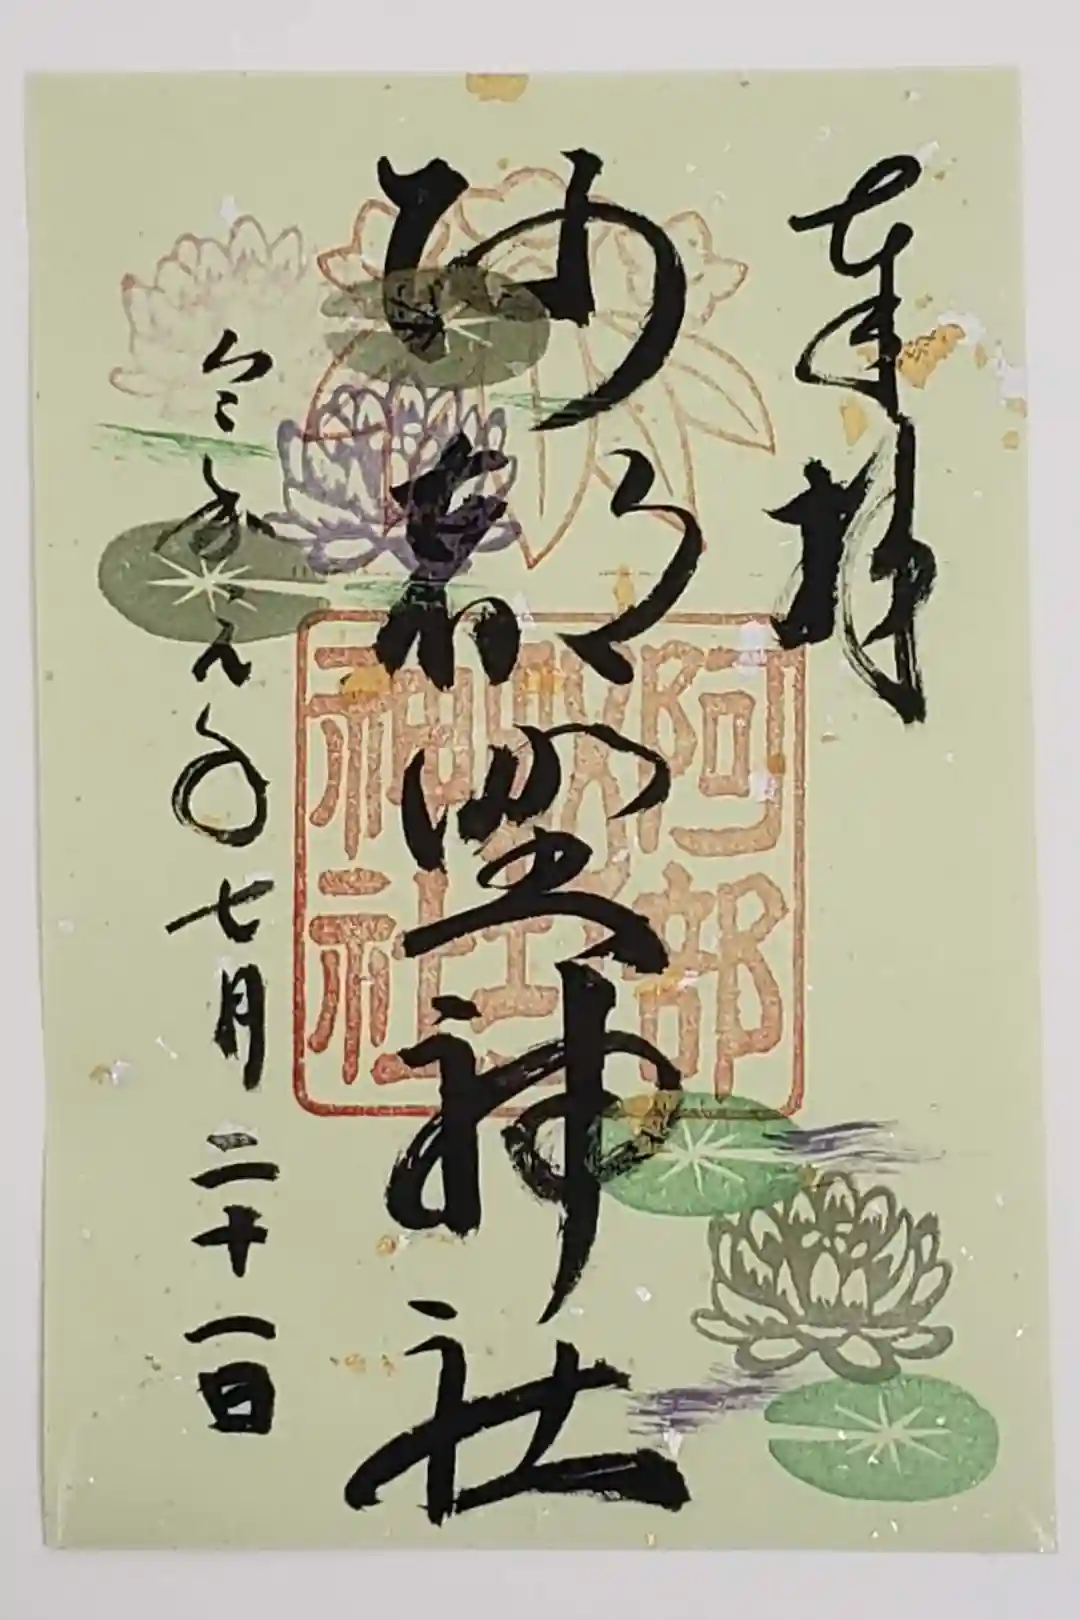 奉拝
阿部野神社
令和元年七月二十一日
阿部
野
神社